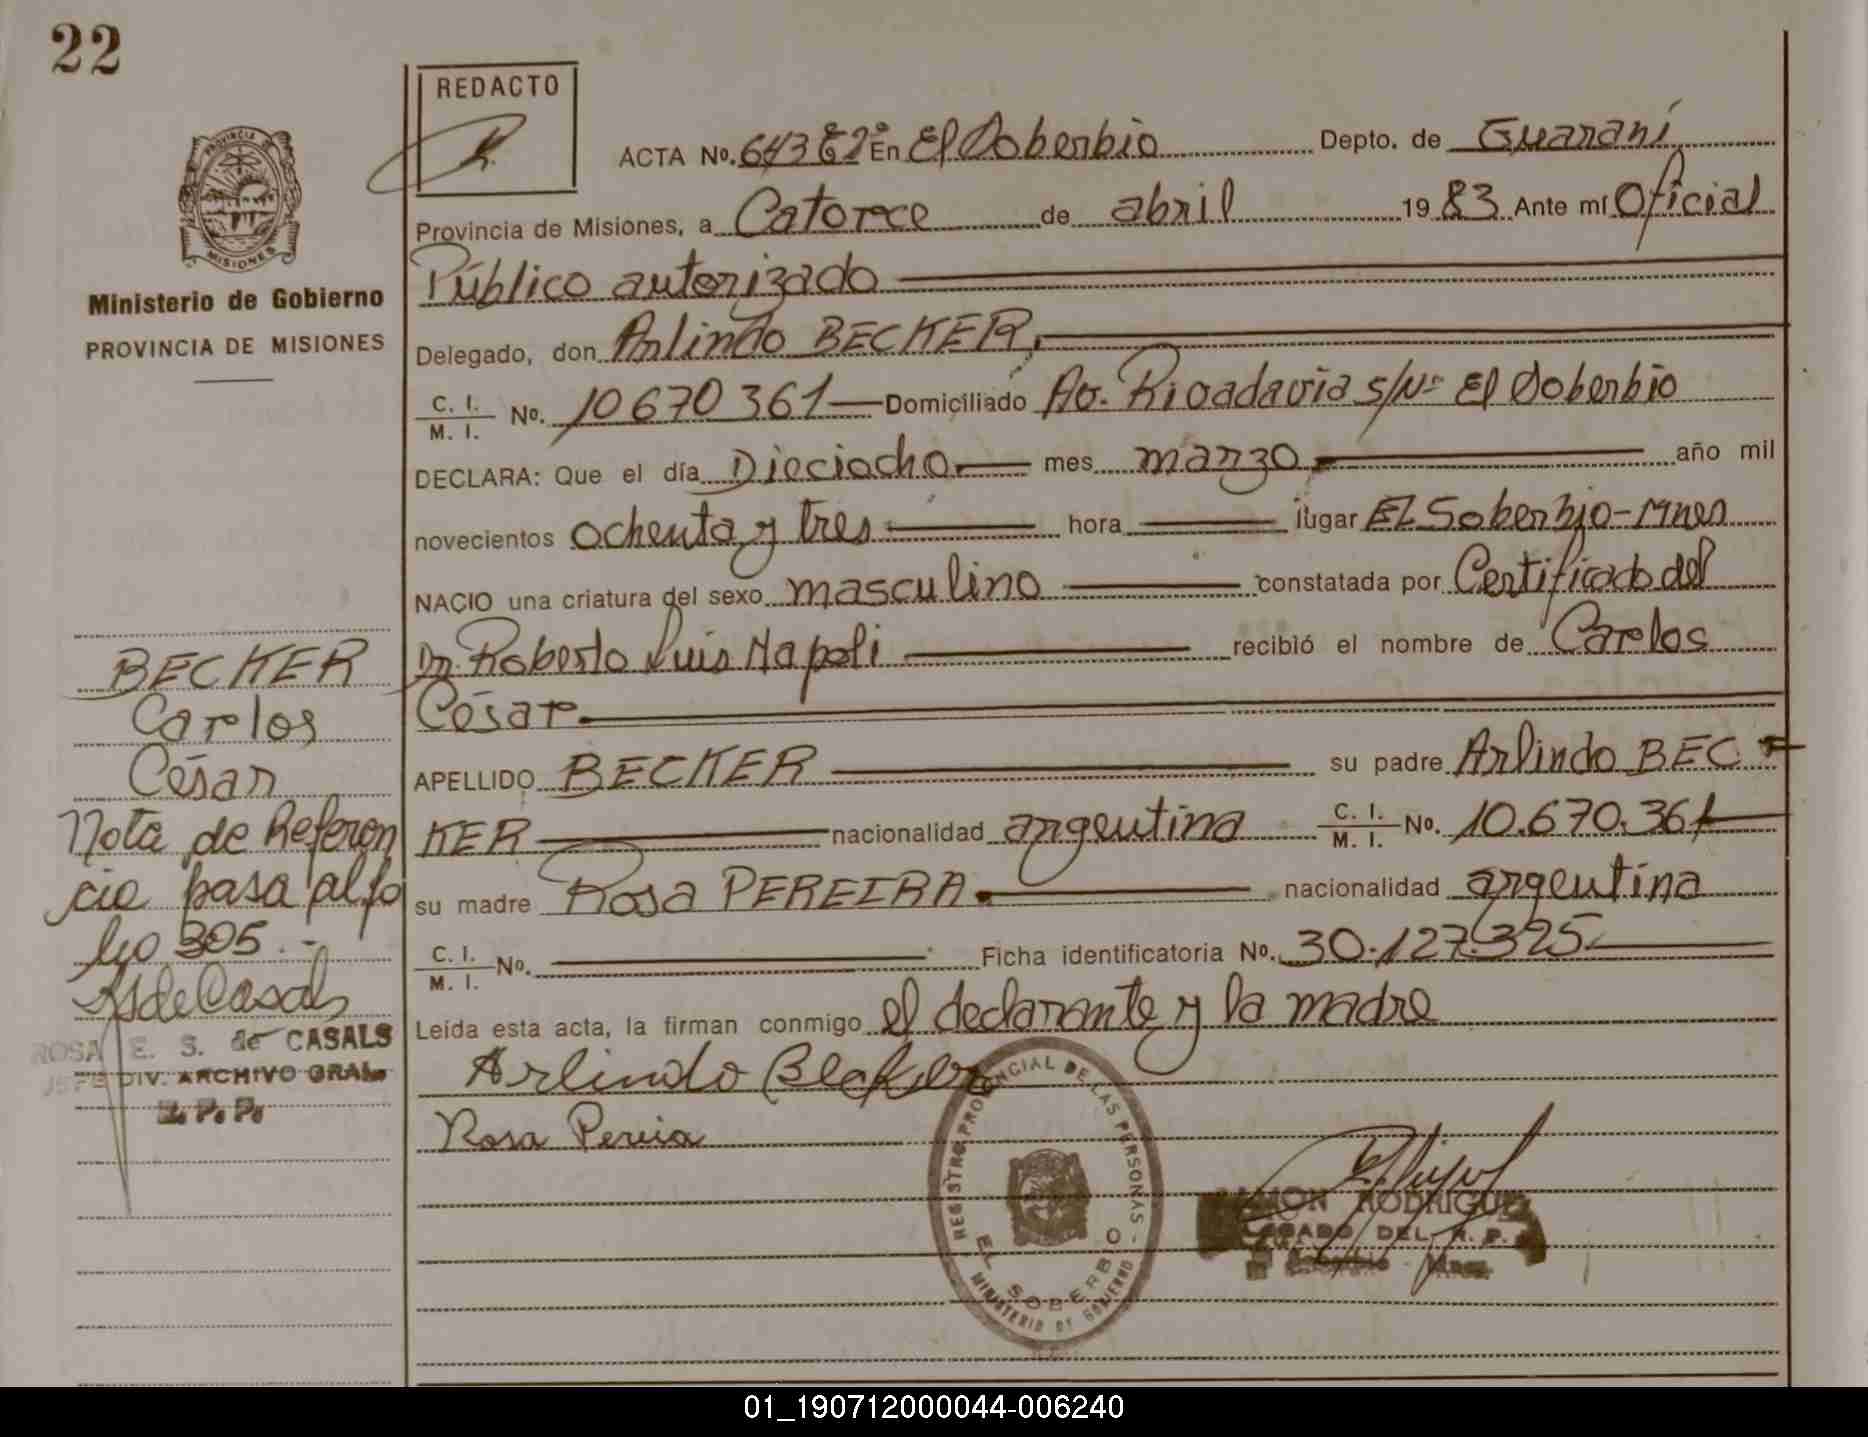 22
REDACTO
PROVINCIA
MISIONES
Ministerio de Gobierno
PROVINCIA DE MISIONES
ACTA No. 643 En El Soberbio Depto. de Guaraní
Provincia de Misiones, a Catorce de abril 1983 Ante mí Oficial
Público autorizado
Delegado, don Arlindo BECKER,
C. I.
M. I. No. 10670361 Domiciliado Av. Rivadavia s/Nº El Soberbio
DECLARA: Que el día Dieciocho mes marzo año mil
novecientos ochenta y tres hora lugar EL Soberbio-Mnes
NACIO una criatura del sexo masculino constatada por Certificado del
Dr. Roberto Luis Napoli recibió el nombre de Carlos
César
APELLIDO BECKER su padre Arlindo BEC
KER nacionalidad argentina C. I.
M. I. No. 10.670.361
su madre Rosa PEREIRA. nacionalidad argentina
C. I.
M. I. No. Ficha identificatoria No. 30.127.325
Leída esta acta, la firman conmigo el declarante y la madre
Arlindo Becker
Rosa Pereira
BECKER
Carlos
César
Nota de Referen
cia pasa al fo
lio 305.-
ROSA E. S. de CASALS
JEFE DIV. ARCHIVO GRAL.
R. P. P.
REGISTRO PROVINCIAL DE LAS PERSONAS -
EL SOBERBIO
MINISTERIO DE GOBIERNO
RAMON RODRIGUEZ
DELEGADO DEL R. P. P.
El Soberbio - Mnes.
01_190712000044-006240